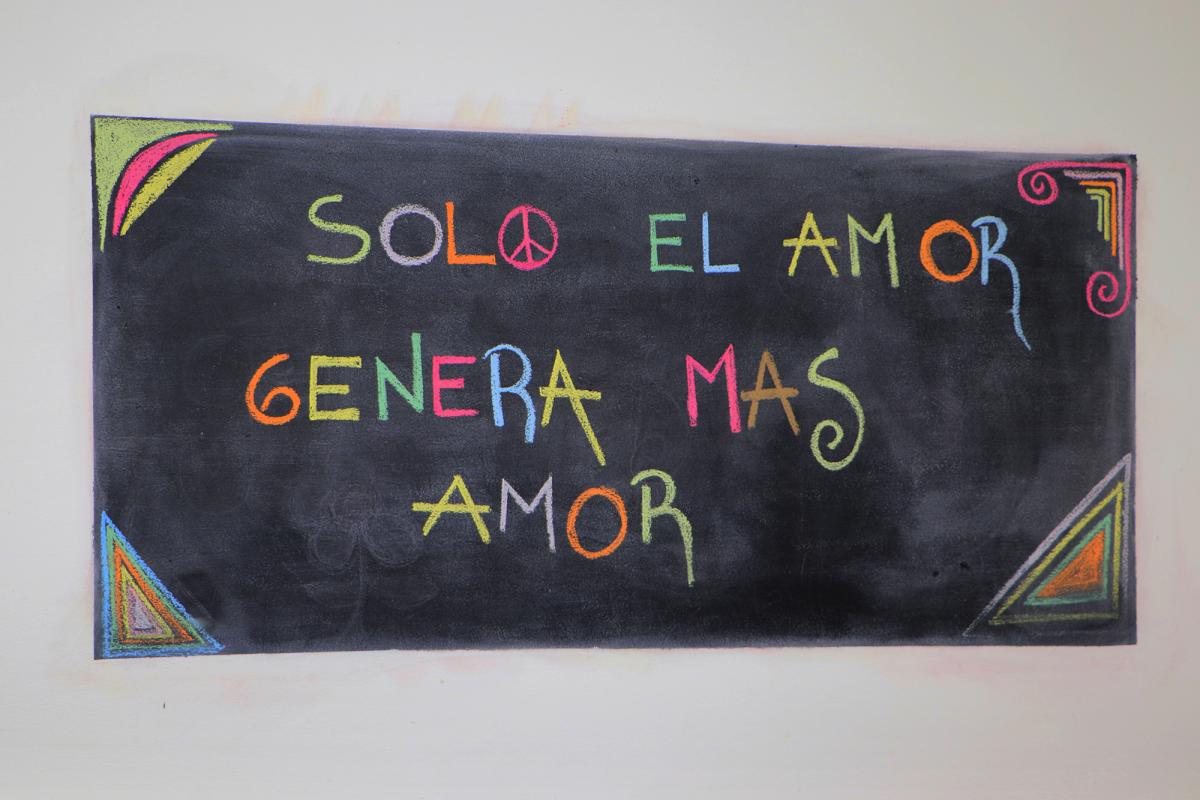 SOLO EL AMOR
GENERA MAS
AMOR